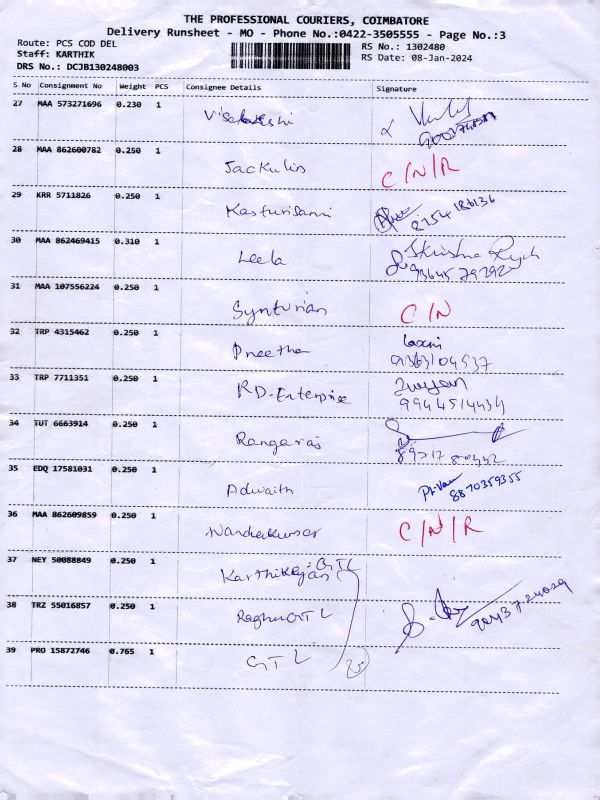 THE PROFESSIONAL COURIERS, COIMBATORE
Delivery Runsheet - MO - Phone No.:0422-3505555 - Page No.:3
Route: PCS COD DEL
Staff: KARTHIK
DRS No.: DCJB130248003
RS No.: 1302480
RS Date: 08-Jan-2024
S No Consignment No Weight PCS Consignee Details Signature
27 MAA 573271696 0.230 1
28 MAA 862600782 0.250 1 Jackulin C/N/R
29 KRR 5711826 0.250 1 Kasturisami 8754186136
30 MAA 862469415 0.310 1 Leela
31 MAA 107556224 0.250 1 Synturian C/N
32 TRP 4315462 0.250 1 Preetha Laxmi
9363104537
33 TRP 7711351 0.250 1 RD-Enterprise
9944514434
34 TUT 6663914 0.250 1 Rangaraj
35 EDQ 17581031 0.250 1 Adwaith 8870359355
36 MAA 862609859 0.250 1 Nandhakumar C/N/R
37 NEY 50088849 0.250 1 Karthikeyan GTL
38 TRZ 55016857 0.250 1 Raghu GTL
39 PRO 15872746 0.765 1 GTL